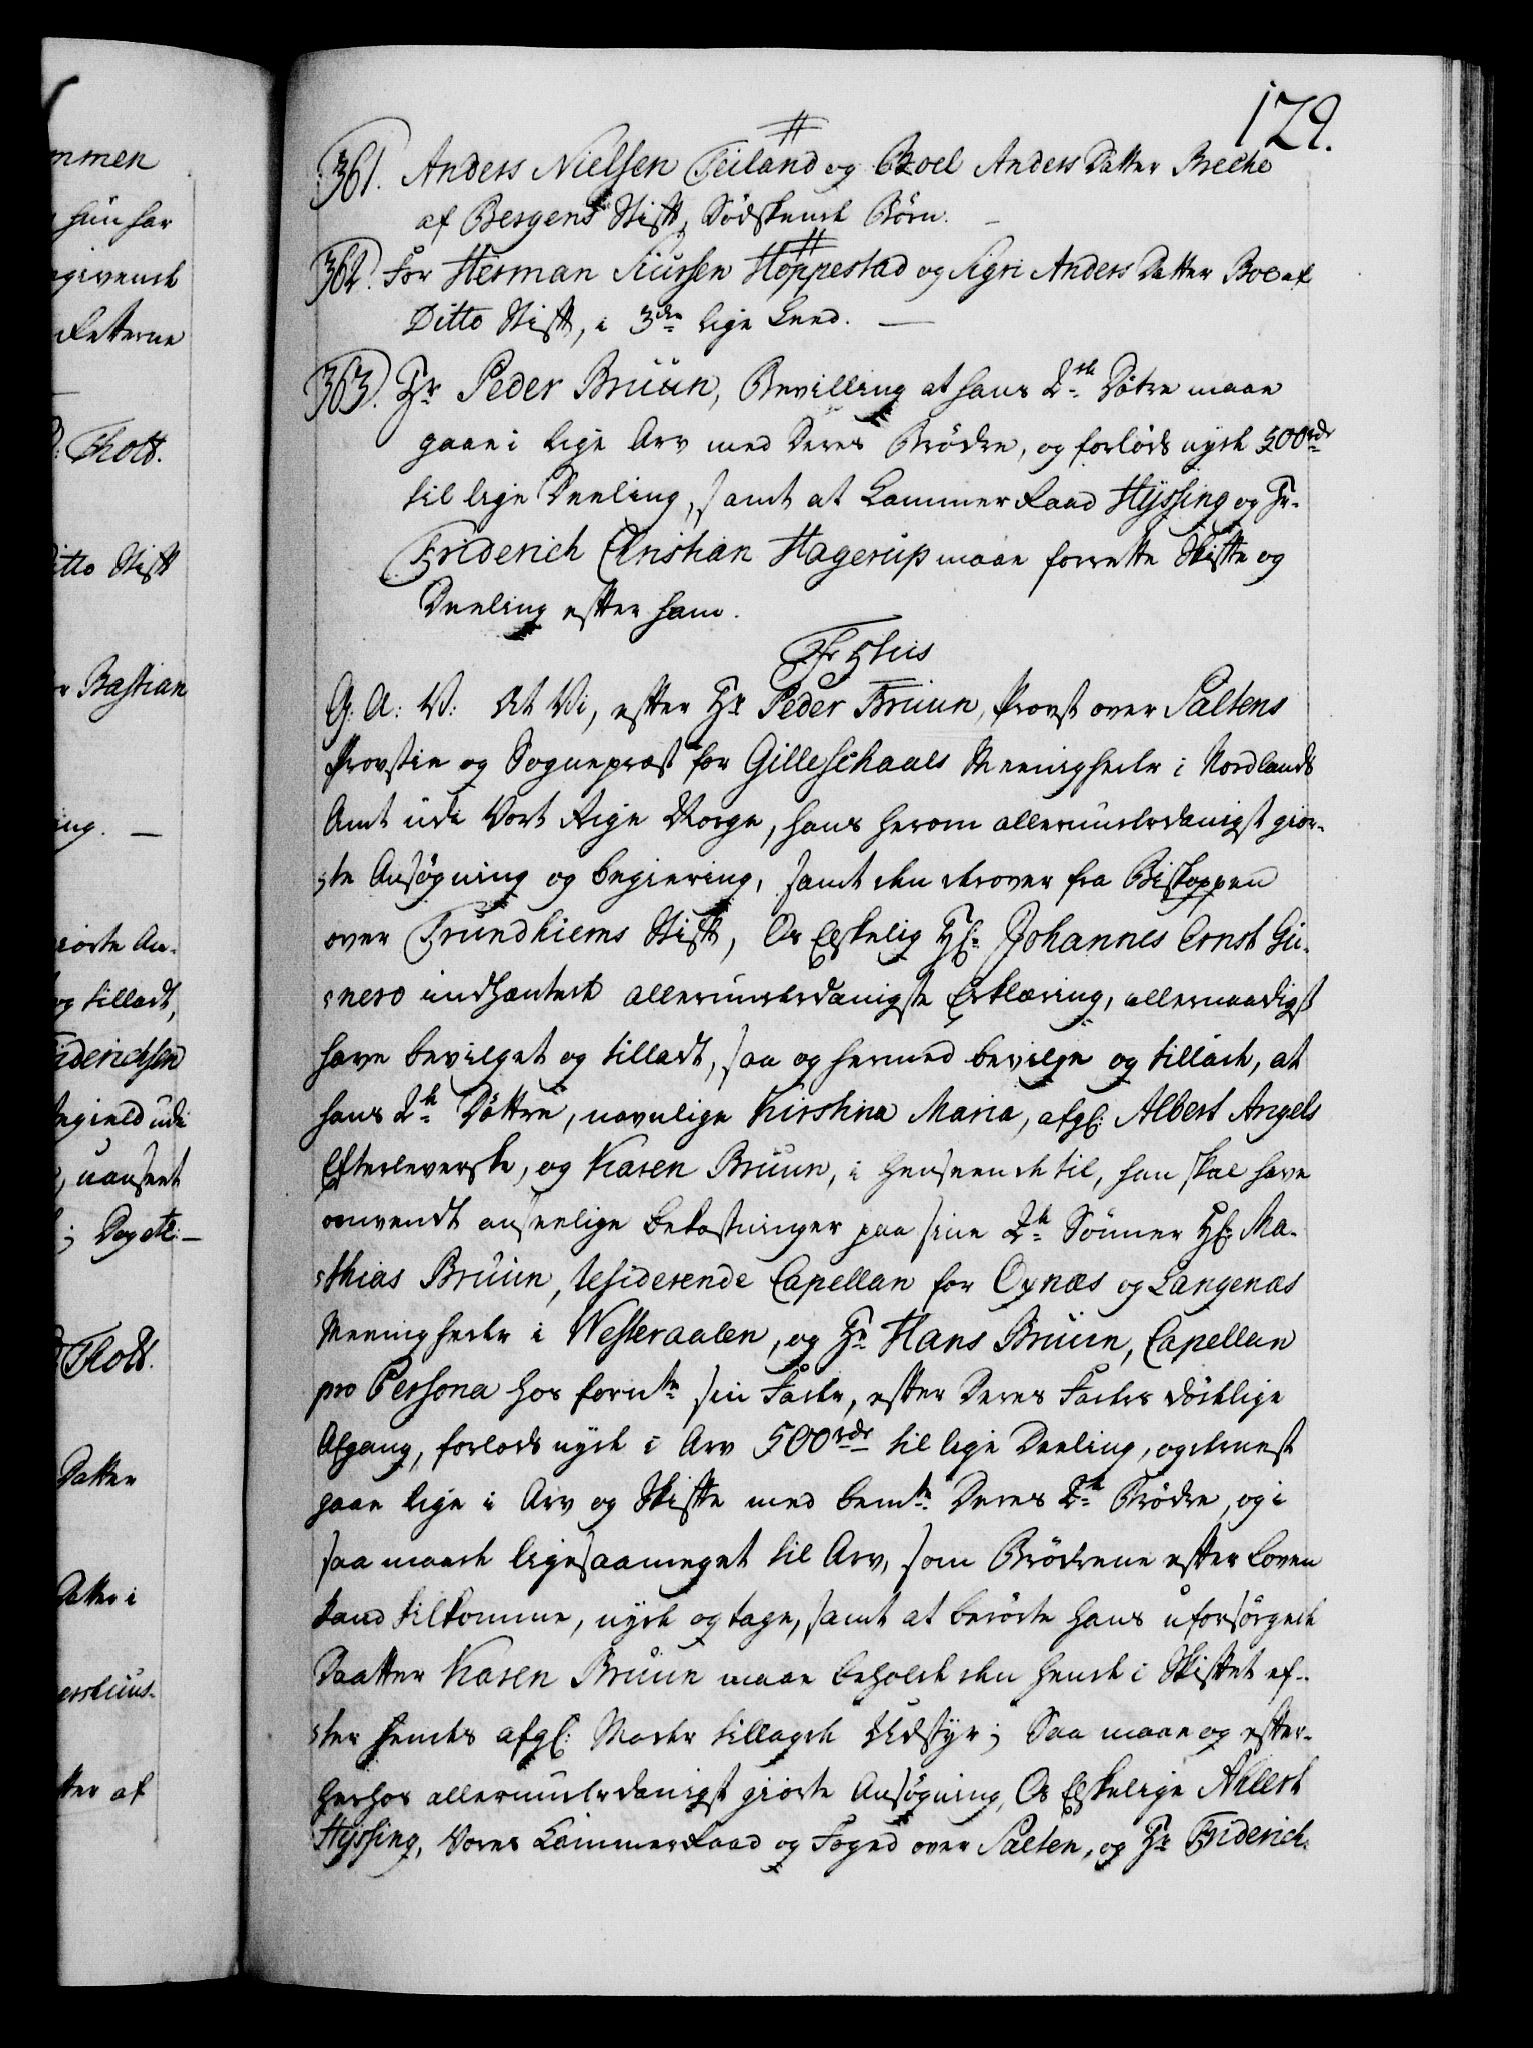 129.
#
361. Anders Nielsen Feiland og Boel Anders Datter Breche
af Bergens Stift, Södskende Börn.
#
362. For Herman Siursen Hoppestad og Sigri Anders Datter Boe af
Ditto Stift, i 3die lige Leed. —
363. Hr Peder Bruun, Bevilling at hans 2de Döttre maae
gaae i lige Arv med Deres Brödre, og forlods nyde 500rdr
til lige Deeling, samt at Cammer Raad Hyssing og Hr.
Friderich Christian Hagerup maae forrette Skifte og
Deeling efter ham.
Fr 5tus
G: A: V: At Vi, efter Hr Peder Bruun, Provst over Saltens
Provstie og Sognepræst for Gilleschaals Meenigheder i Nordlands
Amt udi Vort Rige Norge, hans herom allerunderdanigst gior-
ste Ansögning og begiering, samt den derover fra Biskoppen
over Trundhiems Stift, Os Elskelig Hr: Johannes Ernst Gu-
nero indhentede allerunderdanigste Erklæring, allernaadigst
have bevilget og tilladt, saa og hermed bevilge og tillade, at
hans 2de Döttre, navnlige Kirstina Maria, afgl: Albert Angels
Efterleverske, og Karen Bruun, i henseende til, han skal have
anvendt anseelige bekostninger paa sine 2de Sönner Hr: Ma-
thias Bruun, residerende Capellan for Oxnæs og Langenæs
Meenigheder i Westeraalen, og Hr Hans Bruun, Capellan
pro Persona hos fornte sin Fader, efter Deres Faders dödelige
Afgang, forlods nyde i Arv 500rdr til lige Deeling, og dernest
gaae lige i Arv og Skifte med bemte Deres 2de Brödre, og i
saa maade ligesaameget til Arv, som Brödrene efter Loven
kand tilkomme, nyde og tage, samt at berörte hans uforsörgede
Daatter Karen Bruun maae beholde den hende i Skiftet ef-
ter hendes afgl: Moder tillagde Udstyr; Saa maae og efter-
herhos allerunderdanigst giorte Ansögning, Os Elskelige Ahlert
Hyssing, Vores Cammer Raad og Foged over Salten, og Hr Friderich